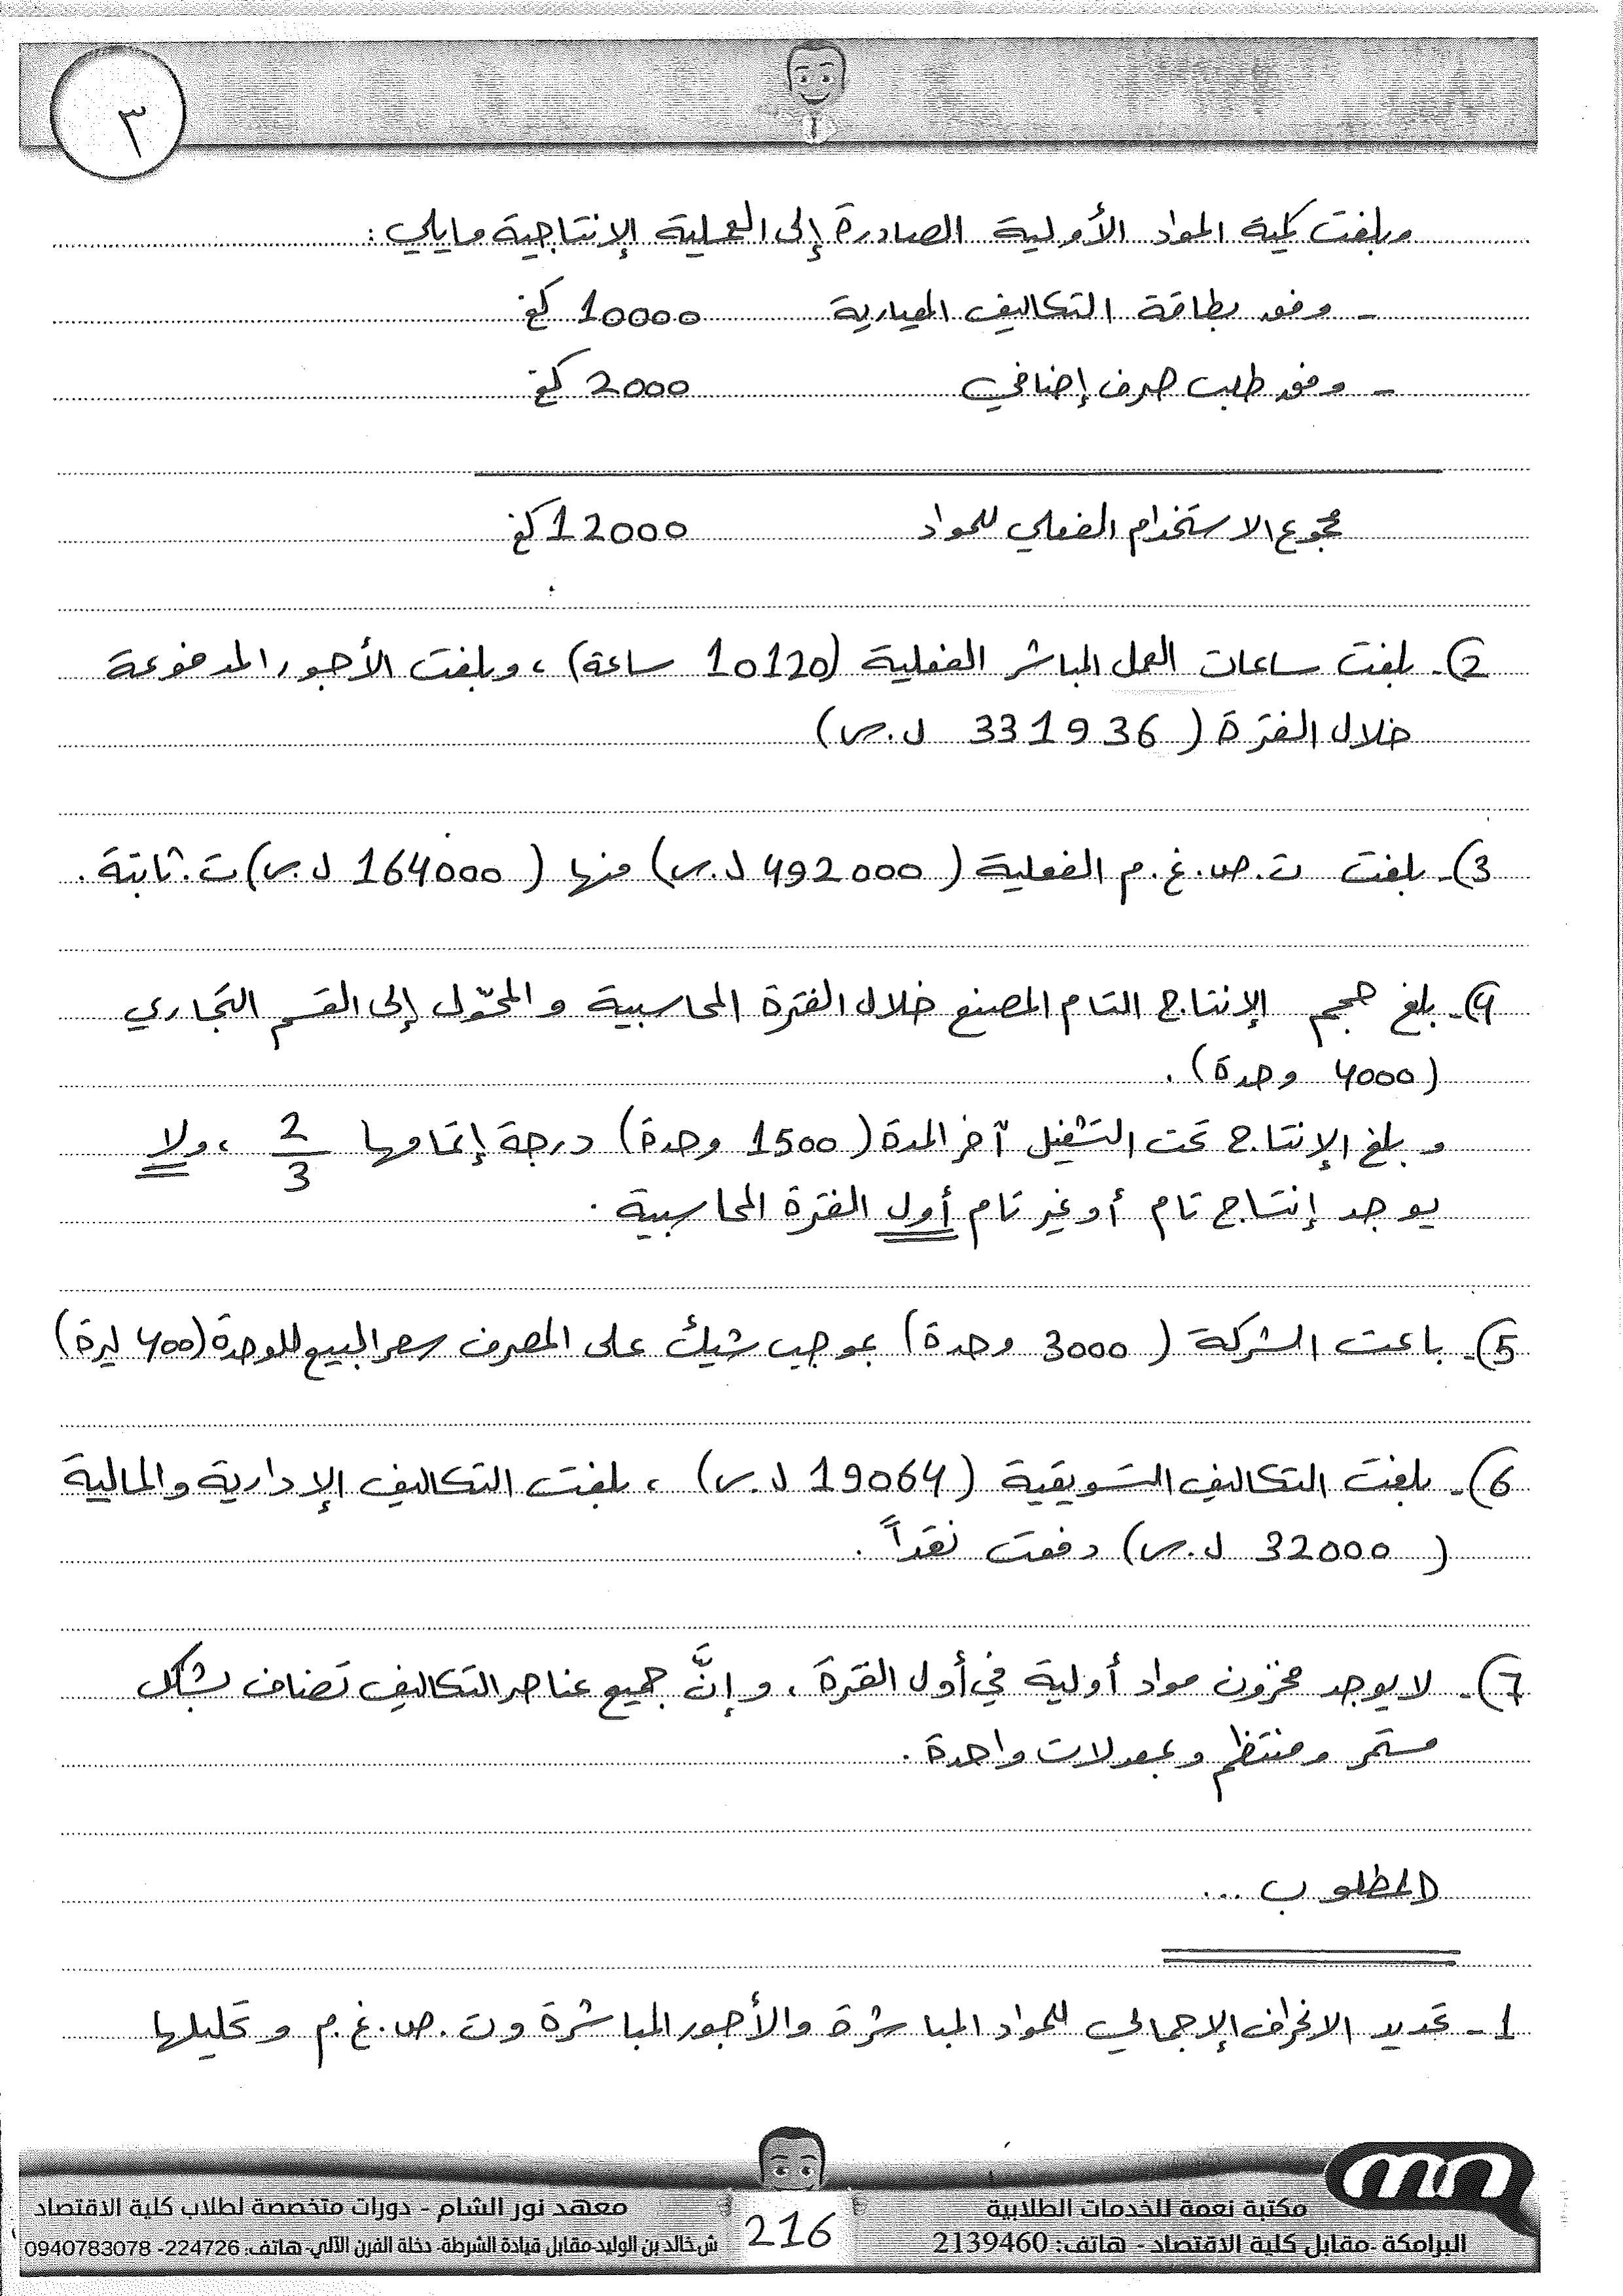 ٣
وبلغت كمية المواد الأولية الصادرة إلى العملية الإنتاجية مايلي :
- وفق بطاقة التكاليف المعيارية 10000 كغ
- وفق طلب صرف إضافي 2000 كغ
مجموع الاستخدام الفعلي للمواد 12000 كغ
2)- بلغت ساعات العمل المباشر الفعلية (10120 ساعة) ، وبلغت الأجور المدفوعة
خلال الفترة ( 331936 ل.س)
3)- بلغت ت.ص.غ.م الفعلية ( 492000 ل.س) منها ( 164000 ل.س) ت.ثابتة .
4)- بلغ حجم الإنتاج التام المصنع خلال الفترة المحاسبية والمحوّل إلى القسم التجاري
(4000 وحدة) .
و بلغ الإنتاج تحت التشغيل آخر المدة ( 1500 وحدة) درجة إتمامها 2/3 ، ولا
يوجد إنتاج تام أو غير تام أول الفترة المحاسبية .
5)- باعت الشركة ( 3000 وحدة) بموجب شيك على المصرف سعر البيع للوحدة (400 ليرة)
6)- بلغت التكاليف التسويقية ( 19064 ل.س) ، بلغت التكاليف الإدارية والمالية
( 32000 ل.س) دفعت نقداً .
7)- لا يوجد مخزون مواد أولية في أول الفترة ، وإنَّ جميع عناصر التكاليف تضاف بشكل
مستمر ومنتظم وبمعدلات واحدة .
المطلوب ...
1- تحديد الانحراف الإجمالي للمواد المباشرة والأجور المباشرة و ت.ص.غ.م وتحليلها
مكتبة نعمة للخدمات الطلابية
البرامكة -مقابل كلية الاقتصاد - هاتف: 2139460
216
معهد نور الشام - دورات متخصصة لطلاب كلية الاقتصاد
ش.خالد بن الوليد-مقابل قيادة الشرطة- دخلة الفرن الآلي- هاتف: 224726- 0940783078